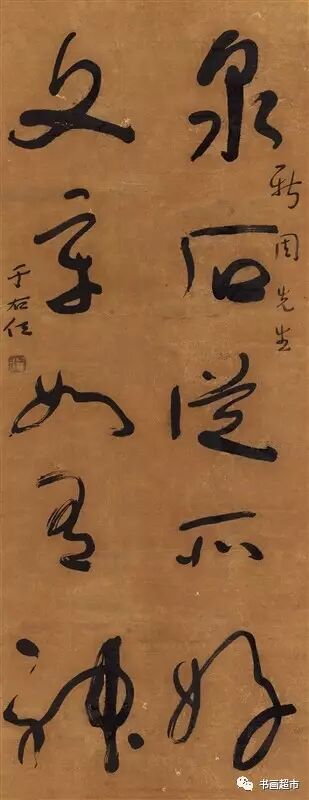 泉石从所好
新周先生
文章如有神
于右任
书画超市